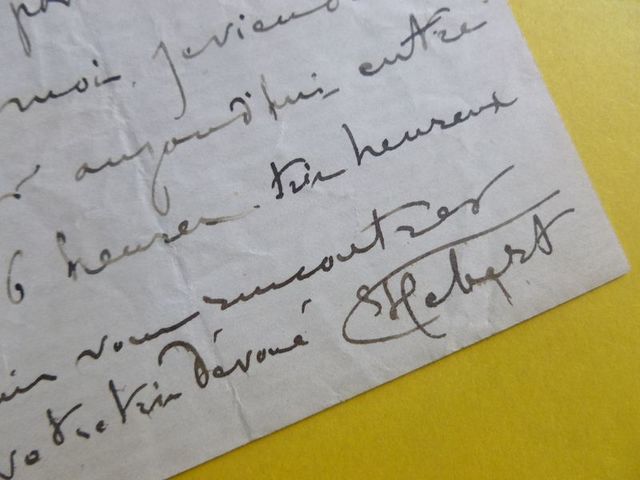 moi. je viend
aujourd'hui entre
6 heures. très heureux
vous rencontrer
votre très dévoué EHebert